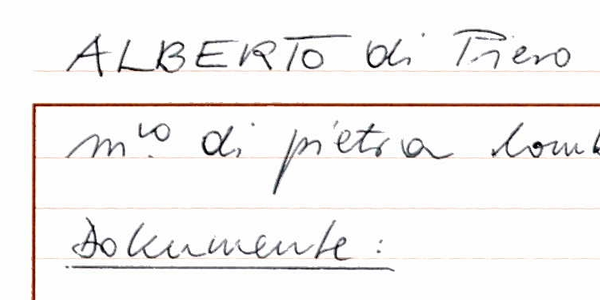 ALBERTO di Piero
m.ro di pietra lomb
Dokumente: